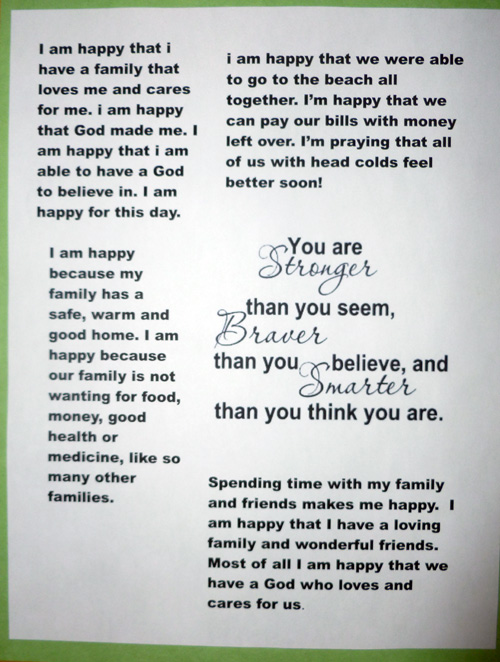 I am happy that i
have a family that
loves me and cares
for me. i am happy
that God made me. I
am happy that i am
able to have a God
to believe in. I am
happy for this day.
i am happy that we were able
to go to the beach all
together. I'm happy that we
can pay our bills with money
left over. I'm praying that all
of us with head colds feel
better soon!
I am happy
because my
family has a
safe, warm and
good home. I am
happy because
our family is not
wanting for food,
money, good
health or
medicine, like so
many other
families.
You are
Stronger
than you seem,
Braver
than you believe, and
Smarter
than you think you are.
Spending time with my family
and friends makes me happy. I
am happy that I have a loving
family and wonderful friends.
Most of all I am happy that we
have a God who loves and
cares for us.